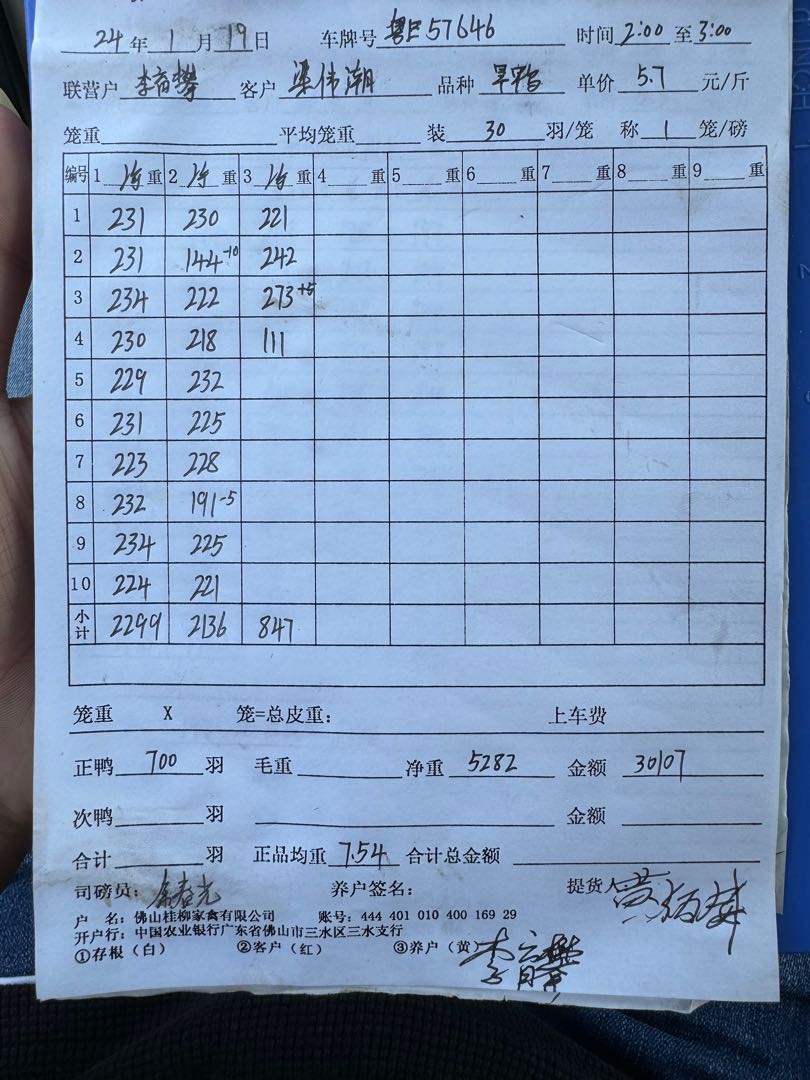 24 年 1 月 19 日 车牌号 粤E57646 时间 2:00 至 3:00
联营户 李育攀 客户 梁伟潮 品种 旱鸭 单价 5.7 元/斤
笼重 平均笼重 装 30 羽/笼 称 1 笼/磅
编号 1 净 重 2 净 重 3 净 重 4 重 5 重 6 重 7 重 8 重 9 重
1 231 230 221
2 231 144-10 242
3 234 222 273+5
4 230 218 111
5 229 232
6 231 225
7 223 228
8 232 191-5
9 234 225
10 224 221
小计 2299 2136 847
笼重 X 笼=总皮重: 上车费
正鸭 700 羽 毛重 净重 5282 金额 30107
次鸭 羽 金额
合计 羽 正品均重 7.54 合计总金额
司磅员: 养户签名: 提货人
户 名: 佛山桂柳家禽有限公司 账号: 444 401 010 400 169 29
开户行: 中国农业银行广东省佛山市三水区三水支行
①存根(白) ②客户(红) ③养户(黄)